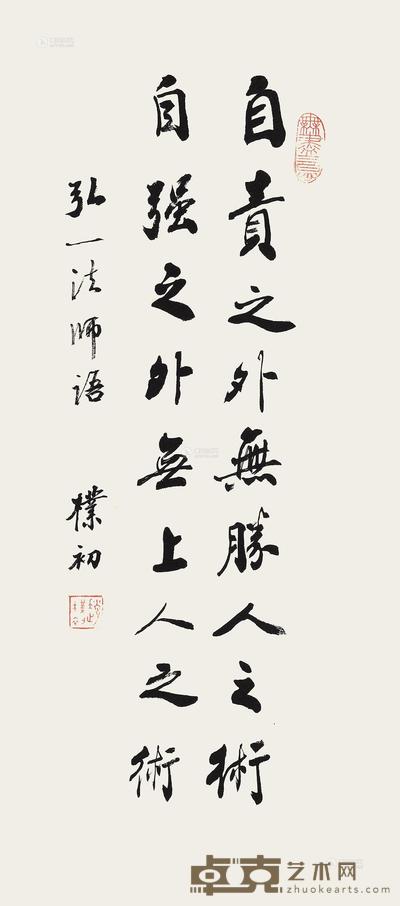 自責之外無勝人之術
自强之外無上人之術
弘一法師語
樸初
卓克艺术网
zhuokearts.com